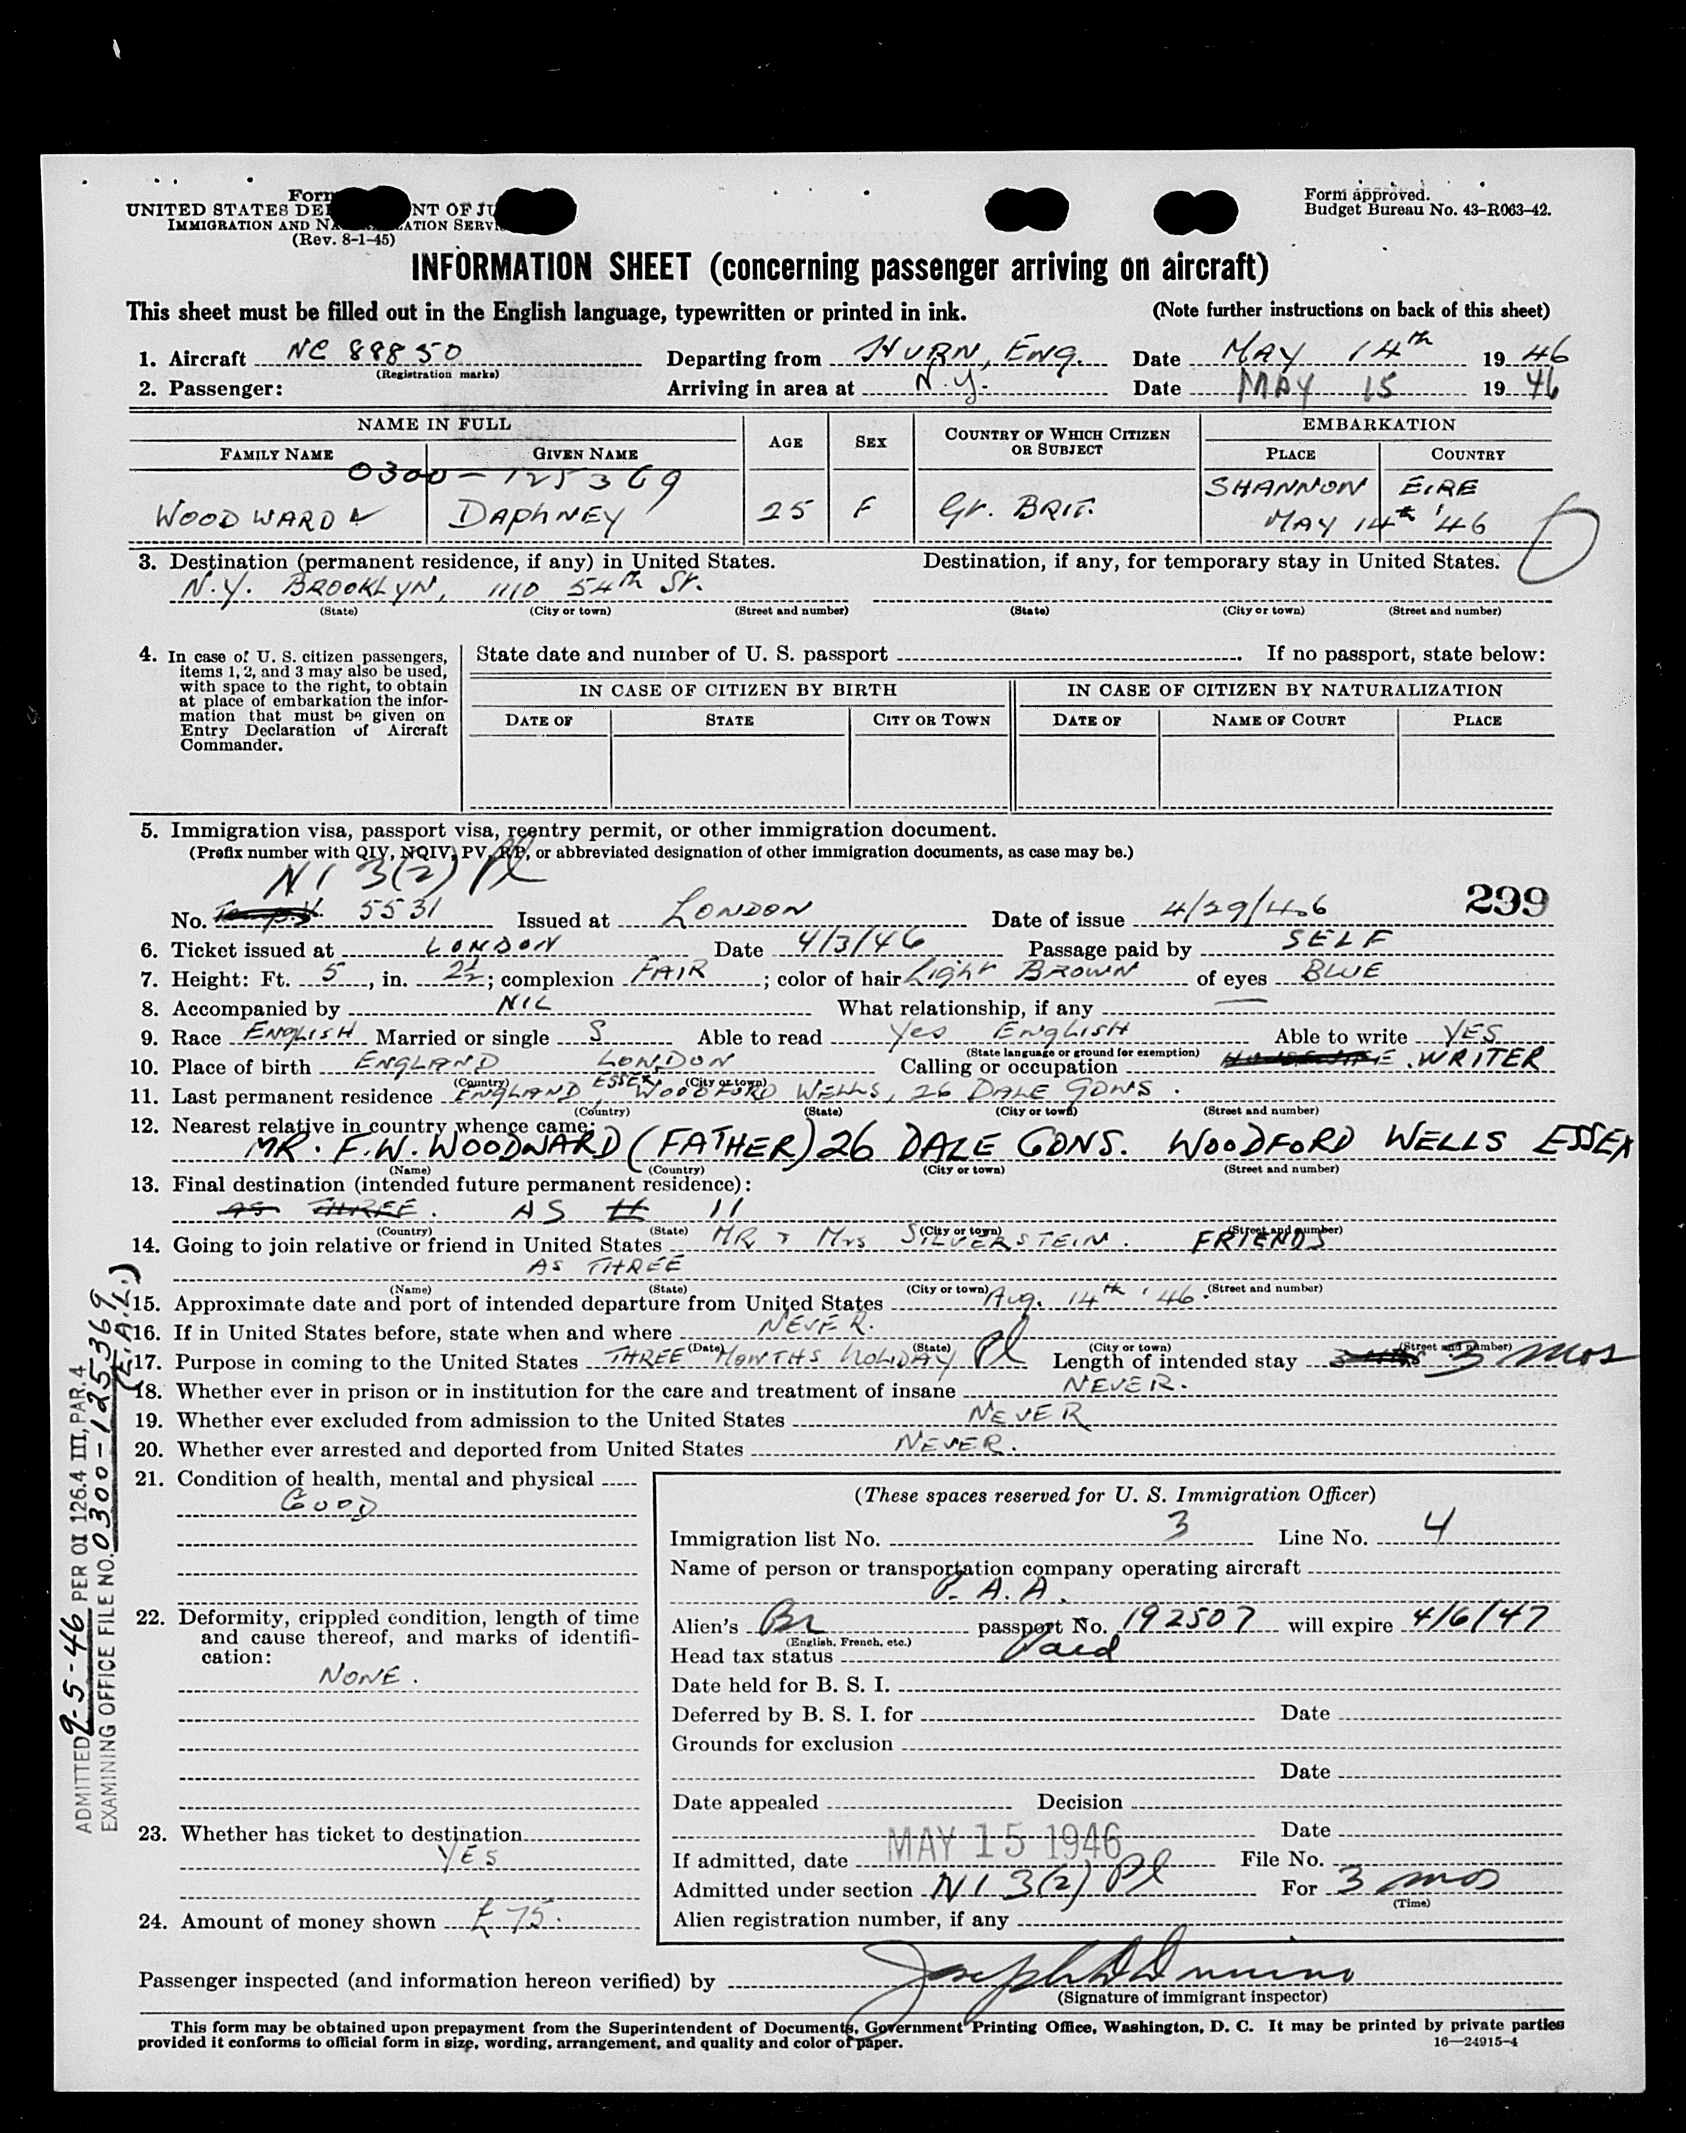 Form
UNITED STATES DE NT OF JU
IMMIGRATION AND NA ATION SERV
(Rev. 8-1-45)
Form approved.
Budget Bureau No. 43-R063-42.
INFORMATION SHEET (concerning passenger arriving on aircraft)
This sheet must be filled out in the English language, typewritten or printed in ink. (Note further instructions on back of this sheet)
1. Aircraft NC 88850 Departing from HURN, ENG. Date MAY 14th 19 46
(Registration marks)
2. Passenger: Arriving in area at N.Y. Date MAY 15 19 46
NAME IN FULL AGE SEX COUNTRY OF WHICH CITIZEN OR SUBJECT EMBARKATION
FAMILY NAME GIVEN NAME PLACE COUNTRY
0300-125369
SHANNON EIRE
WOODWARD DAPHNEY 25 F Gt. BRIT. MAY 14th '46
3. Destination (permanent residence, if any) in United States. Destination, if any, for temporary stay in United States.
N.Y. BROOKLYN, 1110 54th St.
(State) (City or town) (Street and number) (State) (City or town) (Street and number)
4. In case of U. S. citizen passengers, items 1, 2, and 3 may also be used, with space to the right, to obtain at place of embarkation the information that must be given on Entry Declaration of Aircraft Commander.
State date and number of U. S. passport If no passport, state below:
IN CASE OF CITIZEN BY BIRTH IN CASE OF CITIZEN BY NATURALIZATION
DATE OF STATE CITY OR TOWN DATE OF NAME OF COURT PLACE
5. Immigration visa, passport visa, reentry permit, or other immigration document.
(Prefix number with QIV, NQIV, PV, RP, or abbreviated designation of other immigration documents, as case may be.)
NI 3(2) Pl
299
No. 5531 Issued at LONDON Date of issue 4/29/46
6. Ticket issued at LONDON Date 4/3/46 Passage paid by SELF
7. Height: Ft. 5, in. 2½; complexion FAIR; color of hair Light BROWN of eyes BLUE
8. Accompanied by NIL What relationship, if any —
9. Race ENGLISH Married or single S Able to read Yes ENGLISH Able to write YES
(State language or ground for exemption)
10. Place of birth ENGLAND LONDON Calling or occupation WRITER
(Country) (City or town)
11. Last permanent residence ENGLAND, ESSEX, WOODFORD WELLS, 26 DALE GDNS.
(Country) (State) (City or town) (Street and number)
12. Nearest relative in country whence came:
MR. F.W. WOODWARD (FATHER) 26 DALE GDNS. WOODFORD WELLS ESSEX
(Name) (Country) (City or town) (Street and number)
13. Final destination (intended future permanent residence):
AS THREE. AS # 11
(Country) (State) (City or town) (Street and number)
14. Going to join relative or friend in United States MR & Mrs SILVERSTEIN. FRIENDS
AS THREE
(Name) (State) (City or town) (Street and number)
15. Approximate date and port of intended departure from United States Aug. 14th '46.
16. If in United States before, state when and where NEVER.
(Date) (State) (City or town) (Street and number)
17. Purpose in coming to the United States THREE MONTHS HOLIDAY Pl Length of intended stay 3 mos
18. Whether ever in prison or in institution for the care and treatment of insane NEVER.
19. Whether ever excluded from admission to the United States NEVER
20. Whether ever arrested and deported from United States NEVER.
21. Condition of health, mental and physical
GOOD
22. Deformity, crippled condition, length of time and cause thereof, and marks of identification:
NONE.
23. Whether has ticket to destination
YES
24. Amount of money shown £75.
(These spaces reserved for U. S. Immigration Officer)
Immigration list No. 3 Line No. 4
Name of person or transportation company operating aircraft
P.A.A.
Alien's Br passport No. 192507 will expire 4/6/47
(English, French, etc.)
Head tax status Paid
Date held for B. S. I.
Deferred by B. S. I. for Date
Grounds for exclusion
Date
Date appealed Decision
Date
If admitted, date MAY 15 1946 File No.
Admitted under section NI 3(2) Pl For 3 mos
(Time)
Alien registration number, if any
Passenger inspected (and information hereon verified) by
(Signature of immigrant inspector)
This form may be obtained upon prepayment from the Superintendent of Documents, Government Printing Office, Washington, D. C. It may be printed by private parties
provided it conforms to official form in size, wording, arrangement, and quality and color of paper. 16—24915-4
ADMITTED 9-5-46 PER OI 126.4 III, PAR. 4
EXAMINING OFFICE FILE NO. 0300-125369